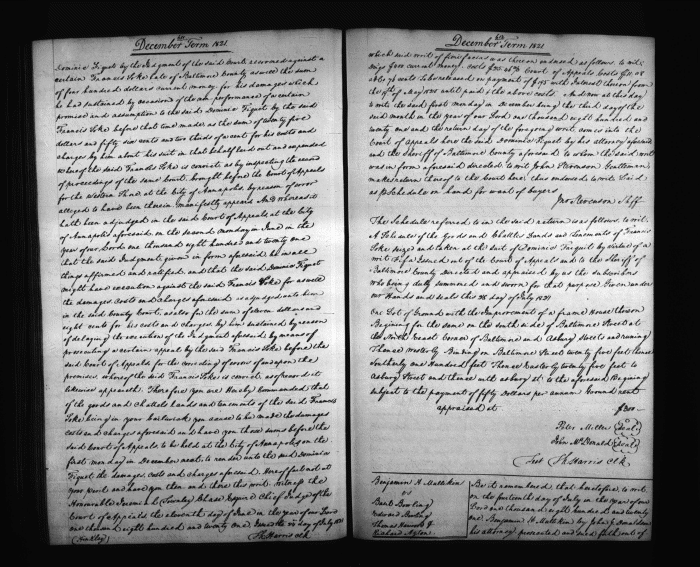 December Term 1821.
Dominic Figuet by the Judgment of the said Court recovered against a
certain Francis Foke late of Baltimore County as well the sum
of four hundred dollars current money for his damages which
he had sustained by occasion of the non performance of a certain
promise and assumption to the said Dominic Figuet by the said
Francis Foke before that time made as the sum of twenty five
dollars and fifty six cents and two thirds of a cent for his costs and
charges by him about his suit in that behalf laid out and expended
whereof the said Francis Foke is convict as by inspecting the record
of proceedings of the same Court brought before the Court of Appeals
for the Western Shore at the City of Annapolis by reason of error
alleged to have been therein manifestly appears And whereas it
hath been adjudged in the said Court of Appeals at the City
of Annapolis aforesaid on the second monday in June in the
year of our Lord one thousand eight hundred and twenty one
that the said Judgment given in form aforesaid be in all
things affirmed and ratified and that the said Dominic Figuet
might have execution against the said Francis Foke for as well
the damages costs and charges aforesaid so adjudged unto him
in the said County Court as also for the sum of dollars and
eight cents for his costs and charges by him sustained by reason
of delaying the execution of the Judgment aforesaid by means of
prosecuting a certain appeal by the said Francis Foke before the
said Court of Appeals for the correcting of errors of and upon the
premises whereof the said Francis Foke is convict as of record it
likewise appeareth Therefore you are hereby Commanded that
of the goods and chattels lands and tenements of the said Francis
Foke being in your bailiwick you cause to be made the damages
costs and charges aforesaid and have you those sums before the
said Court of Appeals to be held at the City of Annapolis on the
first monday in December next to render unto the said Dominic
Figuet the damages costs and charges aforesaid Hereof fail not at
your peril and have you then and there this writ Witness the
Honourable Jeremiah Townley Chase Esquire Chief Judge of the
Court of Appeals the eleventh day of June in the year of our Lord
one thousand eight hundred and twenty one Issued the day of July 1821
(Hinkley) Th Harris Clk
December Term 1821
which said writ of fieri facias was thereon endorsed as follows to wit
400 current money. Costs Court of Appeals Costs
to be released on payment of Interest thereon from
the May 1820 until paid & the above costs. And now at this day
to wit the said first monday in December being the third day of the
said month in the year of our Lord one thousand eight hundred and
twenty one and the return day of the foregoing writ comes into the
Court of appeals here the said Dominic Figuet by his attorney aforesaid
and the sheriff of Baltimore County aforesaid to whom the said writ
was in form aforesaid directed to wit John Stevenson Gentleman
makes return thereof to the Court here thus endorsed to wit Laid
as p Schedule on hand for want of buyers
Jno Stevenson Shff
The Schedule referred to in the said return is as follows to wit.
A Schedule of the Goods and Chattles Lands and Tenements of Francis
Foke seized and taken at the suit of Dominic Figuet by virtue of a
writ Fi fa Issued out of the Court of Appeals and to the Sheriff of
Baltimore County Directed and appraised by us the subscribers
who being duly summoned and sworn for that purpose Given under
our Hands and seals this 28 day of July 1821
One Lot of Ground with the Improvement of a frame House thereon
Begining for the same on the South side of Baltimore Street at
the North East Corner of Baltimore and Asbury Streets and runing
Thence Westerly Binding on Baltimore Street twenty five feet thence
Southerly one Hundred feet Thence Easterly twenty five feet to
Asbury Street and thence with asbury st. to the aforesaid Begining
subject to the payment of fifty dollars per annum Ground rent
appraised at $300
Peter Miller (Seal)
John McDonald (Seal)
Test Th Harris Clk
Benjamin H Mullikin
vs
Bowling
Edward Bowling
Thomas Howard Jr
Richard
Be it remembered that heretofore to wit
on the fourteenth day of July in the year of our
Lord one thousand eight hundred and twenty
one Benjamin H Mullikin by John Donaldson
his attorney prosecuted and sued forth out of